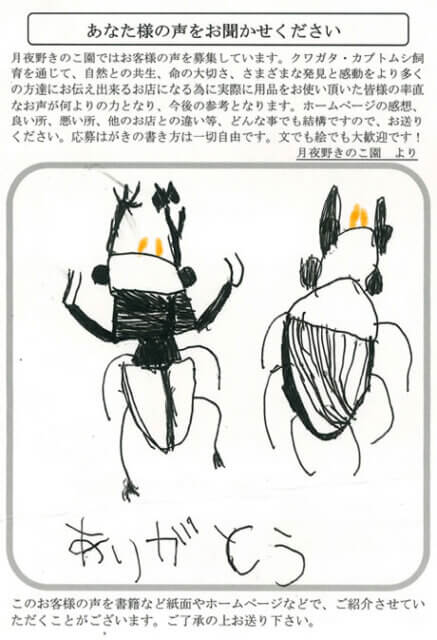 あなた様の声をお聞かせください
月夜野きのこ園ではお客様の声を募集しています。クワガタ・カブトムシ飼
育を通じて、自然との共生、命の大切さ、さまざまな発見と感動をより多く
の方達にお伝え出来るお店になる為に実際に用品をお使い頂いた皆様の率直
なお声が何よりの力となり、今後の参考となります。ホームページの感想、
良い所、悪い所、他のお店との違い等、どんな事でも結構ですので、お送り
ください。応募はがきの書き方は一切自由です。文でも絵でも大歓迎です！
月夜野きのこ園　より
ありがとう
このお客様の声を書籍など紙面やホームページなどで、ご紹介させてい
ただくことがございます。ご了承の上お送り下さい。